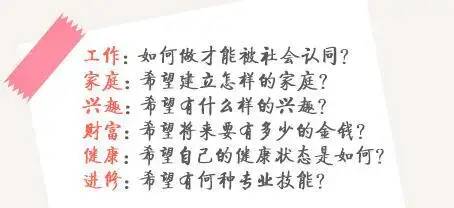 工作：如何做才能被社会认同？
家庭：希望建立怎样的家庭？
兴趣：希望有什么样的兴趣？
财富：希望将来要有多少的金钱？
健康：希望自己的健康状态是如何？
进修：希望有何种专业技能？